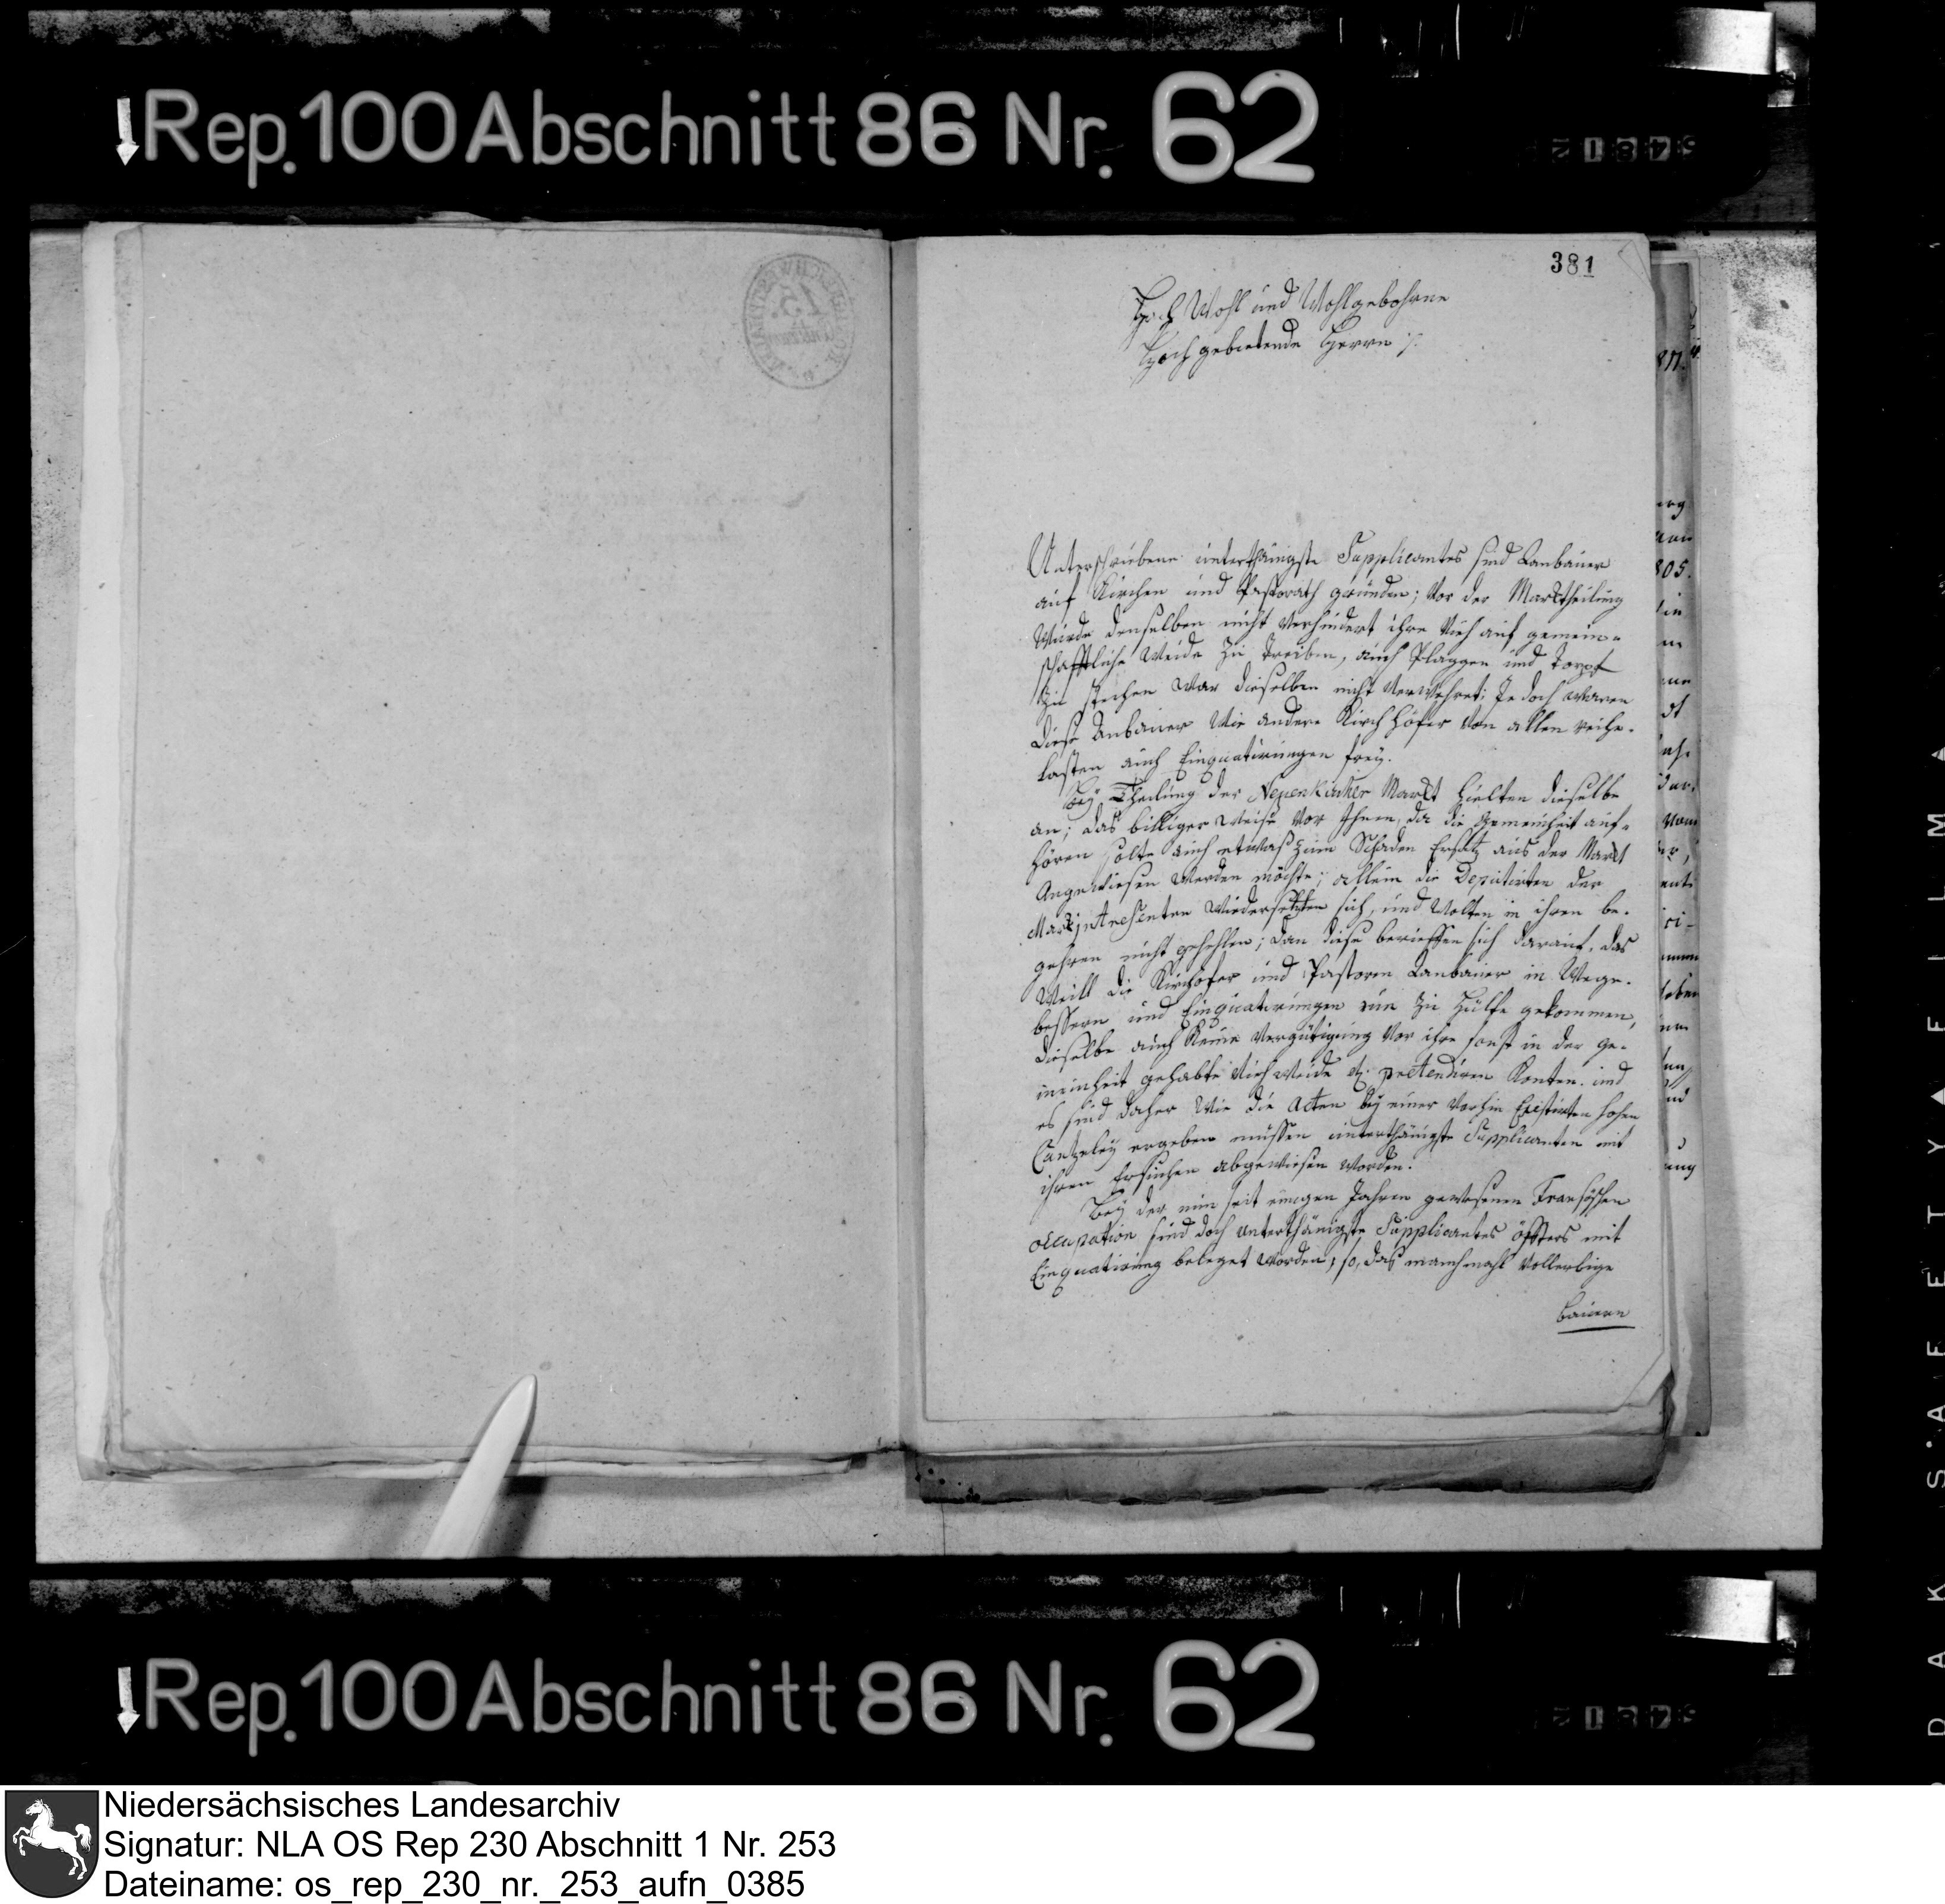 Rep. 100 Abschnitt 86 Nr. 62
381
Hoch Wohl und Wohlgebohrne
Hoch gebietende Herrn
Unterschriebene unterthänigste Supplicantes sind Anbauer
auf Kirchen und Pastorath gründen; Vor der Marktheilung
Wurde denselben nicht Verhindert ihre Vieh auf gemein-
schaftliche Weide zu treiben, auch Plaggen und Torpf
zu stechen War dieselben nicht VerWehret; Jedoch waren
diese Anbauer Wie andere Kirchhöfer Von allen reihe-
lasten auch Einquatirungen frey.
Bey Theilung der Neuenkircher Markt hielten dieselbe
an; das billiger Weise Vor Ihnen, da die Gemeinheit auf-
hören solte auch etwaß zum Schaden Ersatz aus der Markt
Angewiesen Werden möchte; allein die Deputirten der
Markintresenten Wiedersetzten sich, und Wolten in ihren be-
gehren nicht ; dan diese berieffen sich darauf, das
Weill die Kirchöfer und Pastoren Anbauer in Wege-
bessern und Einquatirungen nie zu Hülfe gekommen,
dieselbe auch Keine Vergütigung Vor ihre sonst in der ge-
meinheit gehabte Viehweide pretendiren Konten. und
es sind daher Wie die Acten bey einer Vorhin Existirten hohen
Cantzeley ergeben müssen unterthänigste Supplicanten mit
ihren Ersuchen abgewiesen Worden.
Bey der nun seit einigen Jahren gewesenen Fransöschen
occupation sind doch unterthänigste Supplicantes öffters mit
Einquatirung beleget Worden; so, das manchmahl Vollerbige
Bauern
Rep. 100 Abschnitt 86 Nr. 62
SAFETY FILM
Niedersächsisches Landesarchiv
Signatur: NLA OS Rep 230 Abschnitt 1 Nr. 253
Dateiname: os_rep_230_nr._253_aufn_0385